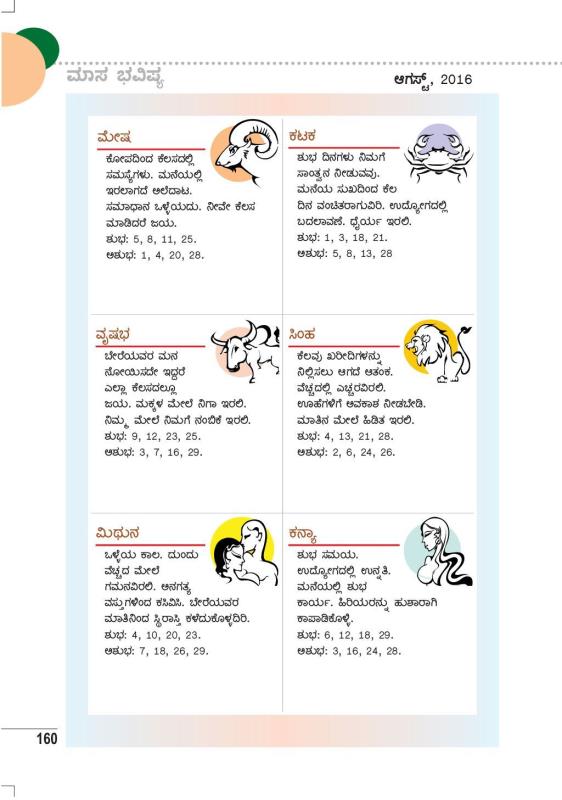 ಮಾಸ ಭವಿಷ್ಯ
ಆಗಸ್ಟ್, 2016
ಮೇಷ
ಕೋಪದಿಂದ ಕೆಲಸದಲ್ಲಿ
ಸಮಸ್ಯೆಗಳು. ಮನೆಯಲ್ಲಿ
ಇರಲಾಗದೆ ಅಲೆದಾಟ.
ಸಮಾಧಾನ ಒಳ್ಳೆಯದು. ನೀವೇ ಕೆಲಸ
ಮಾಡಿದರೆ ಜಯ.
ಶುಭ: 5, 8, 11, 25.
ಅಶುಭ: 1, 4, 20, 28.
ವೃಷಭ
ಬೇರೆಯವರ ಮನ
ನೋಯಿಸದೇ ಇದ್ದರೆ
ಎಲ್ಲಾ ಕೆಲಸದಲ್ಲೂ
ಜಯ. ಮಕ್ಕಳ ಮೇಲೆ ನಿಗಾ ಇರಲಿ.
ನಿಮ್ಮ ಮೇಲೆ ನಿಮಗೆ ನಂಬಿಕೆ ಇರಲಿ.
ಶುಭ: 9, 12, 23, 25.
ಅಶುಭ: 3, 7, 16, 29.
ಮಿಥುನ
ಒಳ್ಳೆಯ ಕಾಲ. ದುಂದು
ವೆಚ್ಚದ ಮೇಲೆ
ಗಮನವಿರಲಿ. ಅನಗತ್ಯ
ವಸ್ತುಗಳಿಂದ ಕಸಿವಿಸಿ. ಬೇರೆಯವರ
ಮಾತಿನಿಂದ ಸ್ಥಿರಾಸ್ತಿ ಕಳೆದುಕೊಳ್ಳದಿರಿ.
ಶುಭ: 4, 10, 20, 23.
ಅಶುಭ: 7, 18, 26, 29.
ಕಟಕ
ಶುಭ ದಿನಗಳು ನಿಮಗೆ
ಸಾಂತ್ವನ ನೀಡುವವು.
ಮನೆಯ ಸುಖದಿಂದ ಕೆಲ
ದಿನ ವಂಚಿತರಾಗುವಿರಿ. ಉದ್ಯೋಗದಲ್ಲಿ
ಬದಲಾವಣೆ. ಧೈರ್ಯ ಇರಲಿ.
ಶುಭ: 1, 3, 18, 21.
ಅಶುಭ: 5, 8, 13, 28
ಸಿಂಹ
ಕೆಲವು ಖರೀದಿಗಳನ್ನು
ನಿಲ್ಲಿಸಲು ಆಗದೆ ಆತಂಕ.
ವೆಚ್ಚದಲ್ಲಿ ಎಚ್ಚರವಿರಲಿ.
ಊಹೆಗಳಿಗೆ ಅವಕಾಶ ನೀಡಬೇಡಿ.
ಮಾತಿನ ಮೇಲೆ ಹಿಡಿತ ಇರಲಿ.
ಶುಭ: 4, 13, 21, 28.
ಅಶುಭ: 2, 6, 24, 26.
ಕನ್ಯಾ
ಶುಭ ಸಮಯ.
ಉದ್ಯೋಗದಲ್ಲಿ ಉನ್ನತಿ.
ಮನೆಯಲ್ಲಿ ಶುಭ
ಕಾರ್ಯ. ಹಿರಿಯರನ್ನು ಹುಶಾರಾಗಿ
ಕಾಪಾಡಿಕೊಳ್ಳಿ.
ಶುಭ: 6, 12, 18, 29.
ಅಶುಭ: 3, 16, 24, 28.
160